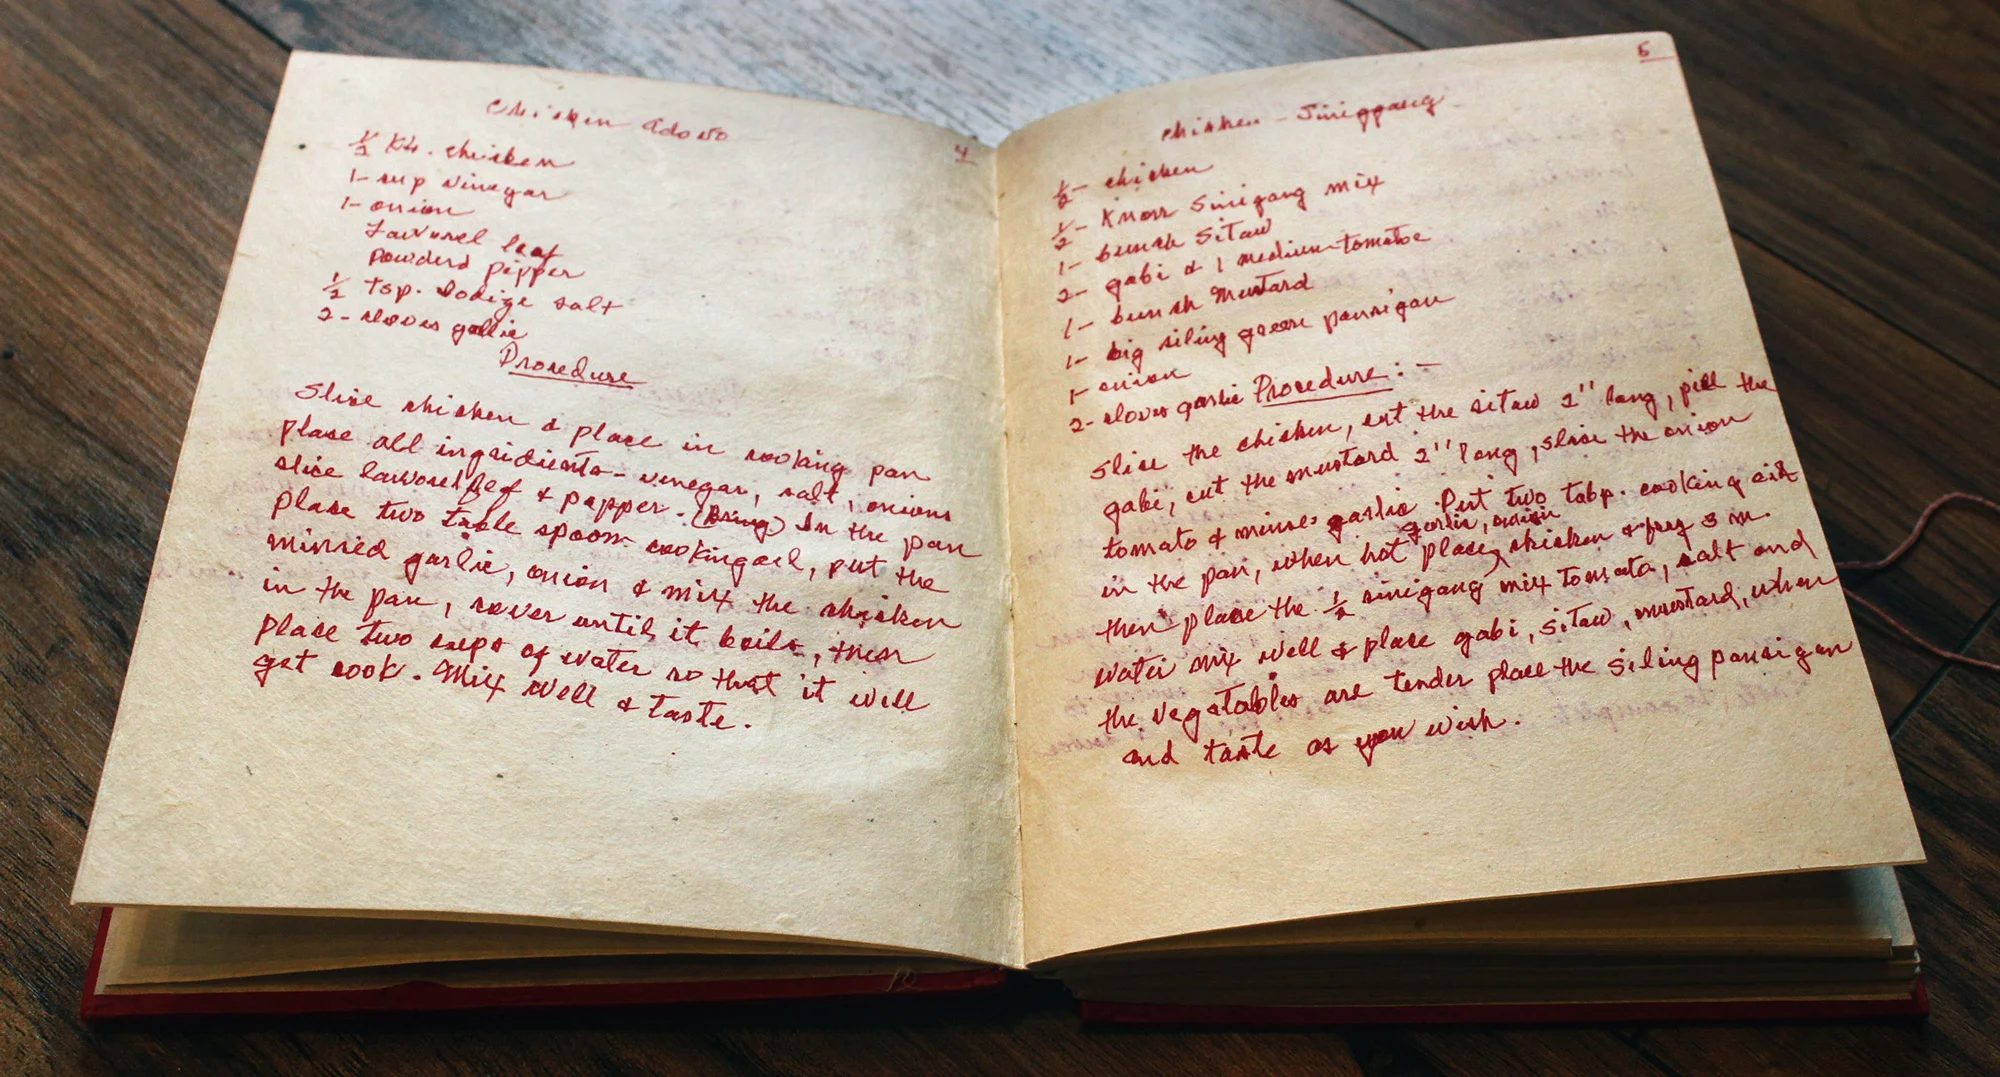 4
Chicken Adovo
1/2 Kh. chicken
1- cup vinegar
1- onion
Lawurel leaf
Powderd pepper
1/2 tsp. Iodize salt
2- cloves gallic
Procedure
Slice chicken & place in cooking pan
place all ingridients- vinegar, salt, onions
slice lawourel lef & papper. (Bring) In the pan
place two table spoom cookingoil, put the
minced garlic, onion & mix the chicken
in the pan, cover until it boils, then
place two cups of water so that it will
get cook. Mix well & taste.
5
Chicken - Siniggang
1/2- chicken
1/2- Knorr Sinigang mix
1- bunch Sitaw
2- gabi & 1 medium-tomatoe
1- bunch Mustard
1- big siling green pansigan
1- onion
2- cloves garlic Procedure : -
Slice the chicken, cut the sitaw 2" long, pill the
gabi, cut the mustard 2" long, slice the onion
tomato & mince garlic. Put two tabp. cooking
garlic, onion
in the pan, when hot place chicken & frey 3 m.
then place the 1/2 sinigang mix tomato, salt and
water mix well & place gabi, sitaw, mustard, when
the vegatables are tender place the siling pansigan
and taste as you wish.